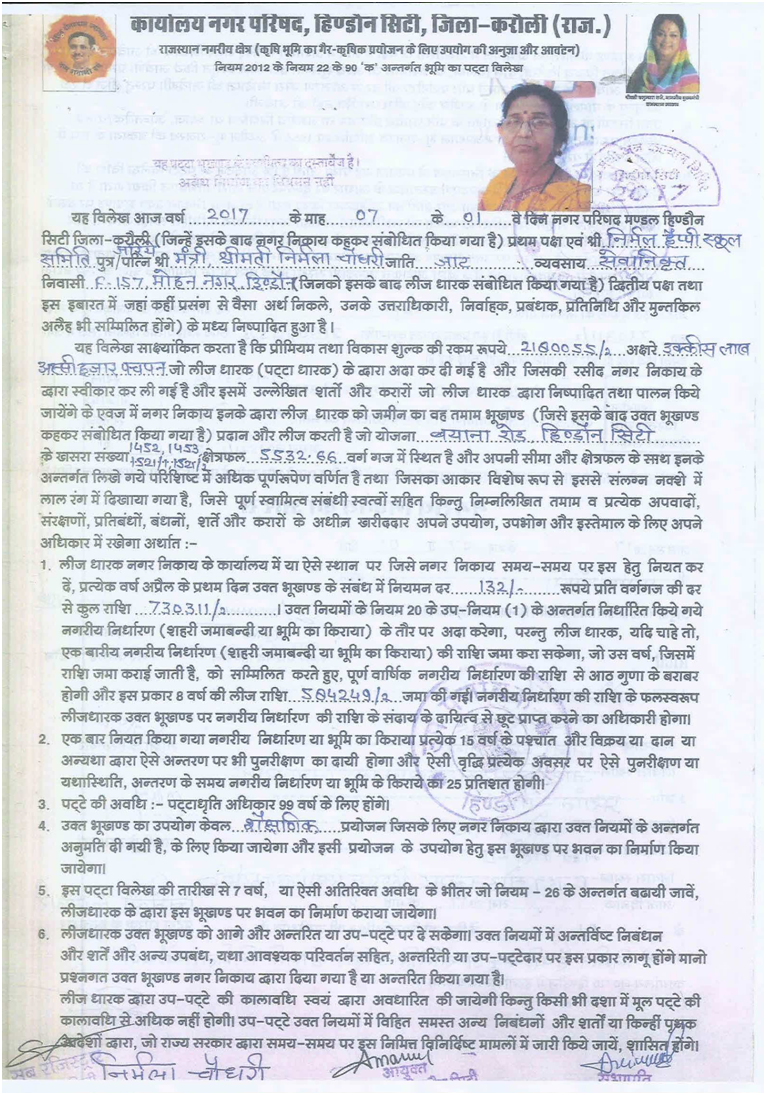 कार्यालय नगर परिषद, हिण्डौन सिटी, जिला–करौली (राज.)
राजस्थान नगरीय क्षेत्र (कृषि भूमि का गैर-कृषिक प्रयोजन के लिए उपयोग की अनुज्ञा और आवंटन)
नियम 2012 के नियम 22 के 90 'क' अन्तर्गत भूमि का पट्टा विलेख
यह पट्टा भूखण्ड के स्वामित्व का दस्तावेज है।
अवैध निर्माण का नियमन नहीं
हिण्डौन सिटी
2017
यह विलेख आज वर्ष 2017 के माह 07 के 01 वे दिन नगर परिषद मण्डल हिण्डौन
सिटी जिला–करौली (जिनें इसके बाद नगर निकाय कहकर संबोधित किया गया है) प्रथम पक्ष एवं श्री निर्मल हैप्पी स्कूल
समिति जरिये पुत्र/पत्नि श्री मंत्री, श्रीमती निर्मला चौधरी जाति जाट व्यवसाय सेवानिवृत
निवासी F-157, मोहन नगर, हिण्डौन (जिनको इसके बाद लीज धारक संबोधित किया गया है) द्वितीय पक्ष तथा
इस इबारत में जहां कहीं प्रसंग से वैसा अर्थ निकले, उनके उत्तराधिकारी, निर्वाहक, प्रबंधक, प्रतिनिधि और मुन्तकिल
अलैह भी सम्मिलित होंगे) के मध्य निष्पादित हुआ है।
यह विलेख साक्ष्यांकित करता है कि प्रीमियम तथा विकास शुल्क की रकम रूपये 2180055/= अक्षरे इक्कीस लाख
अस्सी हजार पचपन जो लीज धारक (पट्टा धारक) के द्वारा अदा कर दी गई है और जिसकी रसीद नगर निकाय के
द्वारा स्वीकार कर ली गई है और इसमें उल्लेखित शर्तो और करारों जो लीज धारक द्वारा निष्पादित तथा पालन किये
जायेंगे के एवज में नगर निकाय इनके द्वारा लीज धारक को जमीन का वह तमाम भूखण्ड (जिसे इसके बाद उक्त भूखण्ड
कहकर संबोधित किया गया है) प्रदान और लीज करती है जो योजना बयाना रोड, हिण्डौन सिटी
के खसरा संख्या 1452, 1453, 1521/1, 1521/2 क्षेत्रफल 5532.66 वर्ग गज में स्थित है और अपनी सीमा और क्षेत्रफल के साथ इनके
अन्तर्गत लिखे गये परिशिष्ट में अधिक पूर्णरूपेण वर्णित है तथा जिसका आकार विशेष रूप से इससे संलग्न नक्शे में
लाल रंग में दिखाया गया है, जिसे पूर्ण स्वामित्व संबंधी स्वत्वों सहित किन्तु निम्नलिखित तमाम व प्रत्येक अपवादों,
संरक्षणों, प्रतिबंधों, बंधनों, शर्ते और करारों के अधीन खरीददार अपने उपयोग, उपभोग और इस्तेमाल के लिए अपने
अधिकार में रखेगा अर्थात :–
1. लीज धारक नगर निकाय के कार्यालय में या ऐसे स्थान पर जिसे नगर निकाय समय–समय पर इस हेतु नियत कर
दें, प्रत्येक वर्ष अप्रैल के प्रथम दिन उक्त भूखण्ड के संबंध में नियमन दर 132/- रूपये प्रति वर्गगज की दर
से कुल राशि 730311/= । उक्त नियमों के नियम 20 के उप–नियम (1) के अन्तर्गत निर्धारित किये गये
नगरीय निर्धारण (शहरी जमाबन्दी या भूमि का किराया) के तौर पर अदा करेगा, परन्तु लीज धारक, यदि चाहे तो,
एक बारीय नगरीय निर्धारण (शहरी जमाबन्दी या भूमि का किराया) की राशि जमा करा सकेगा, जो उस वर्ष, जिसमें
राशि जमा कराई जाती है, को सम्मिलित करते हुए, पूर्ण वार्षिक नगरीय निर्धारण की राशि से आठ गुणा के बराबर
होगी और इस प्रकार 8 वर्ष की लीज राशि 584249/= जमा की गई। नगरीय निर्धारण की राशि के फलस्वरूप
लीजधारक उक्त भूखण्ड पर नगरीय निर्धारण की राशि के संदाय के दायित्व से छूट प्राप्त करने का अधिकारी होगा।
2. एक बार नियत किया गया नगरीय निर्धारण या भूमि का किराया प्रत्येक 15 वर्ष के पश्चात और विक्रय या दान या
अन्यथा द्वारा ऐसे अन्तरण पर भी पुनरीक्षण का दायी होगा और ऐसी वृद्धि प्रत्येक अवसर पर ऐसे पुनरीक्षण या
यथास्थिति, अन्तरण के समय नगरीय निर्धारण या भूमि के किराये का 25 प्रतिशत होगी।
3. पट्टे की अवधि :– पट्टाधृति अधिकार 99 वर्ष के लिए होंगे।
4. उक्त भूखण्ड का उपयोग केवल शैक्षणिक प्रयोजन जिसके लिए नगर निकाय द्वारा उक्त नियमों के अन्तर्गत
अनुमति दी गयी है, के लिए किया जायेगा और इसी प्रयोजन के उपयोग हेतु इस भूखण्ड पर भवन का निर्माण किया
जायेगा।
5. इस पट्टा विलेख की तारीख से 7 वर्ष, या ऐसी अतिरिक्त अवधि के भीतर जो नियम – 26 के अन्तर्गत बढायी जावें,
लीजधारक के द्वारा इस भूखण्ड पर भवन का निर्माण कराया जायेगा।
6. लीजधारक उक्त भूखण्ड को आगे और अन्तरित या उप–पट्टे पर दे सकेगा। उक्त नियमों में अन्तर्विष्ट निबंधन
और शर्तें और अन्य उपबंध, यथा आवश्यक परिवर्तन सहित, अन्तरिती या उप–पट्टेदार पर इस प्रकार लागू होंगे मानो
प्रश्नगत उक्त भूखण्ड नगर निकाय द्वारा दिया गया है या अन्तरित किया गया है।
लीज धारक द्वारा उप–पट्टे की कालावधि स्वयं द्वारा अवधारित की जायेगी किन्तु किसी भी दशा में मूल पट्टे की
कालावधि से अधिक नहीं होगी। उप–पट्टे उक्त नियमों में विहित समस्त अन्य निबंधनों और शर्तो या किन्हीं पृथक
आदेशों द्वारा, जो राज्य सरकार द्वारा समय–समय पर इस निमित्त विनिर्दिष्ट मामलों में जारी किये जायें, शासित होंगे।
सब रजिस्ट्रार
निर्मला चौधरी
आयुक्त
सभापति